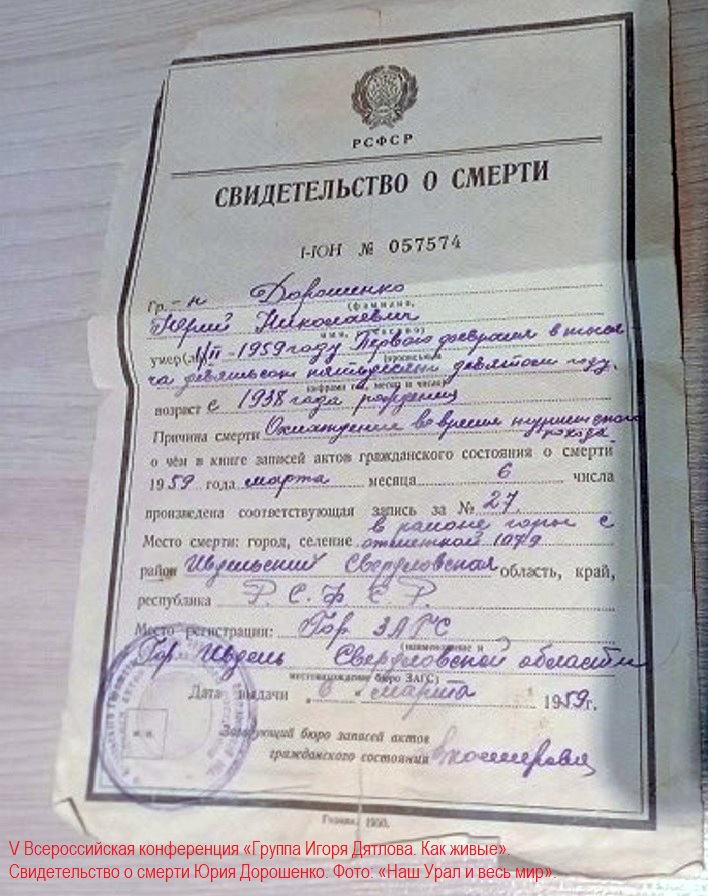 РСФСР
СВИДЕТЕЛЬСТВО О СМЕРТИ
I-ГОН № 057574
Гр.-н Дорошенко
(фамилия,
Юрий Николаевич
имя, отчество)
умер(ла) 1/II-1959 году Первого февраля тыся
(прописью
ча девятьсот пятьдесят девятом году.
цифрами год, месяц и число)
возраст с 1938 года рождения
Причина смерти Охлаждение во время туристского
похода
о чём в книге записей актов гражданского состояния о смерти
1959 года марта месяца 6 числа
произведена соответствующая запись за № 27.
в районе горы с
Место смерти: город, селение отметкой 1079
район Ивдельский Свердловская область, край,
республика Р.С.Ф.С.Р.
Место регистрации: Гор. ЗАГС
(наименование и
Гор. Ивдель Свердловской области
местонахождение бюро ЗАГС)
Дата выдачи „6" марта 1959г.
Заведующий бюро записей актов
гражданского состояния
Гознак, 1950.
V Всероссийская конференция «Группа Игоря Дятлова. Как живые».
Свидетельство о смерти Юрия Дорошенко. Фото: «Наш Урал и весь мир».